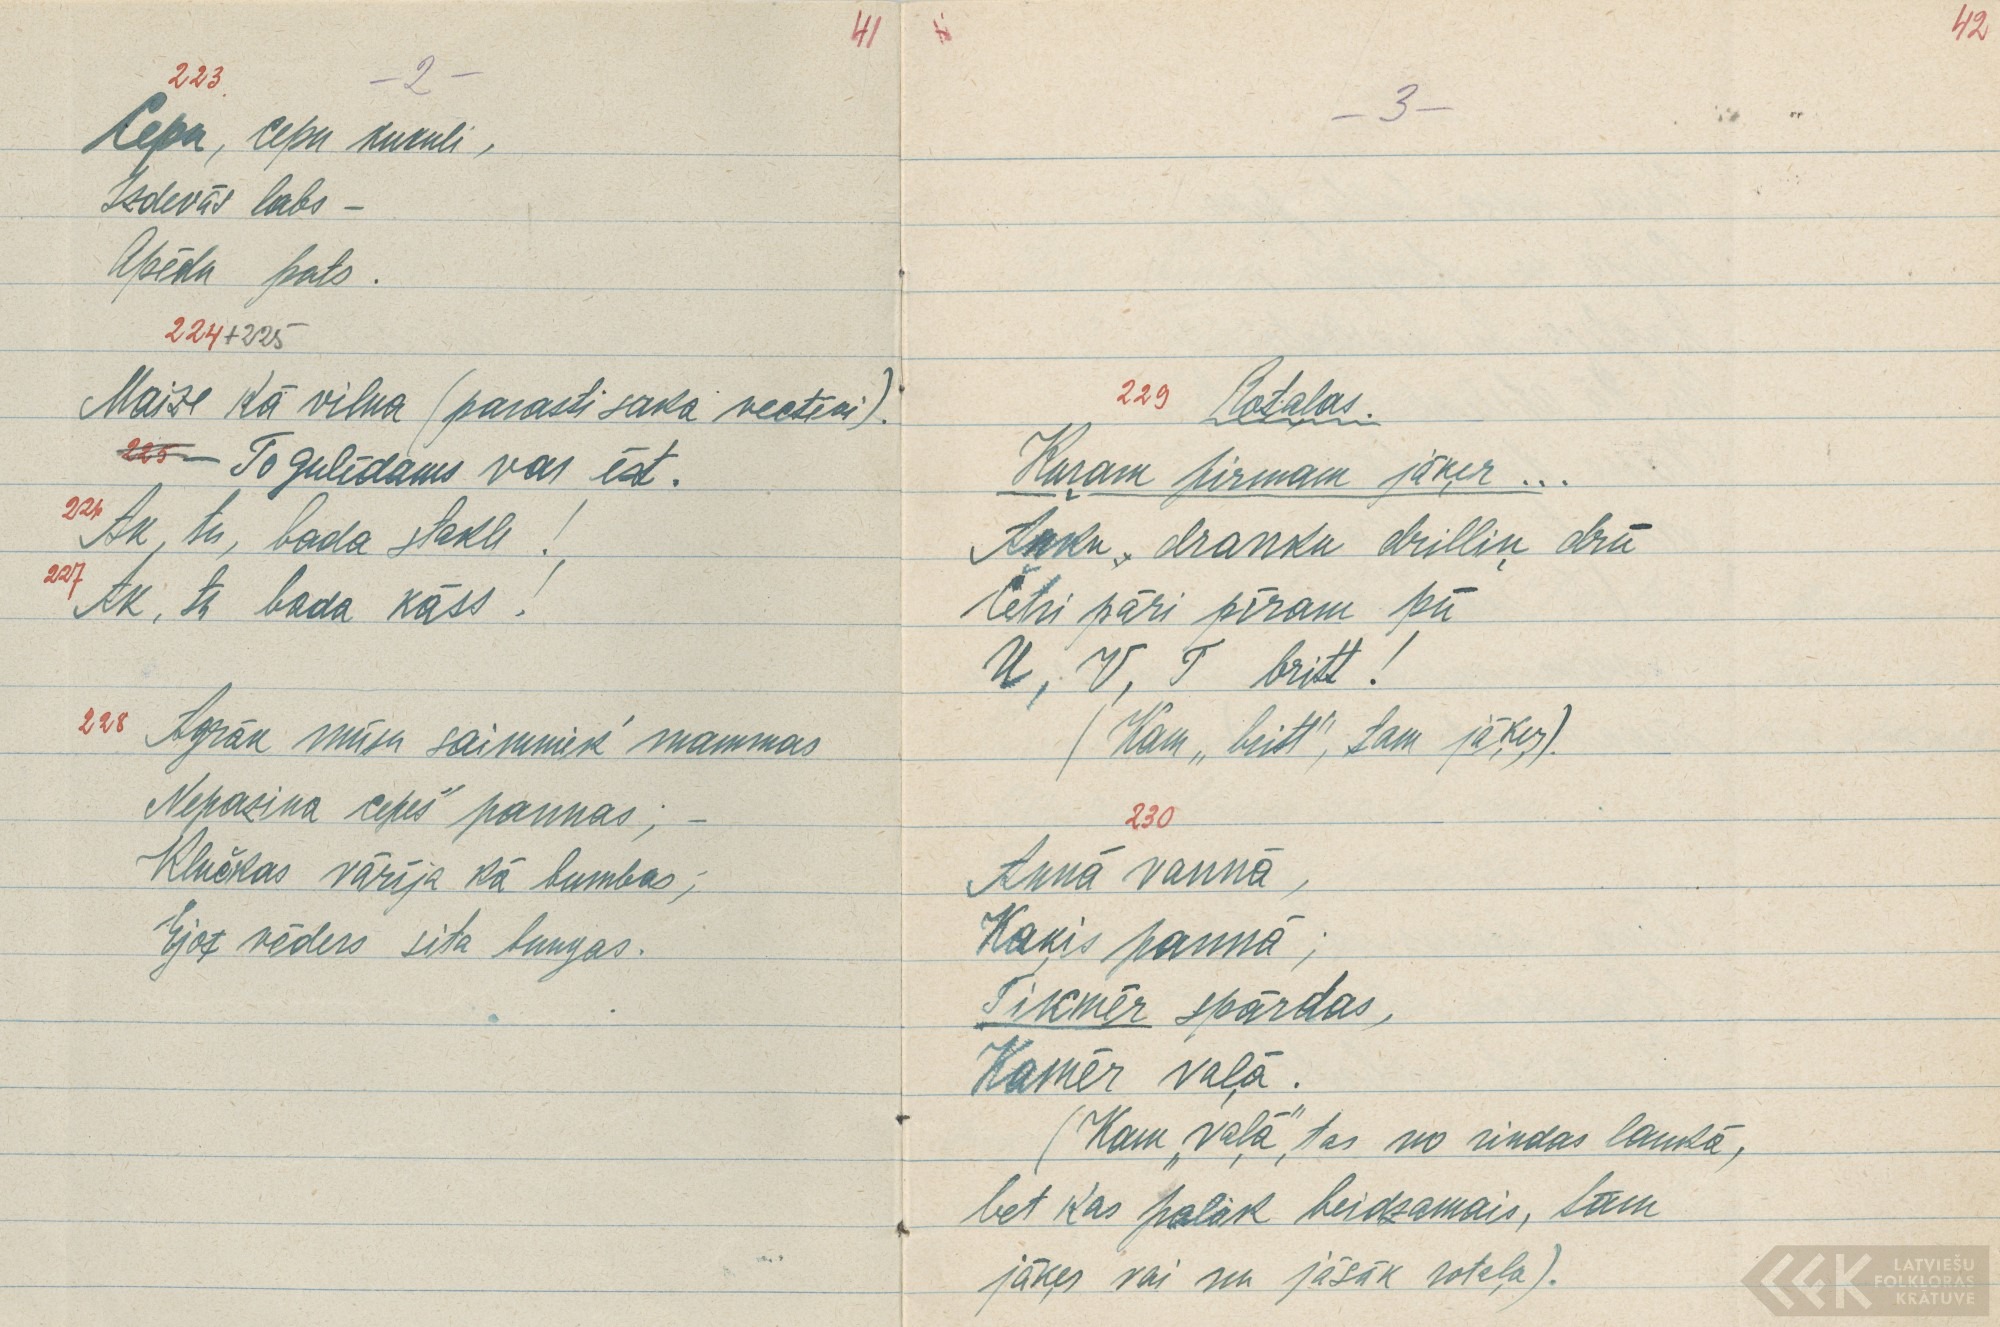 41
223.
-2-
Cepu, cepu kukuli,
Izdevās labs -
Apēdu pats.
224+225
Maize kā vilna (parasti saka vectēvi).
225 - To gulēdams var ēst.
226 Ak, tu, bada stakle!
227 Ak, tu bada kāss!
228 Agrāk mūsu saimniek' mammas
Nepazina cepeš' pannas; -
Klučkas vārīja kā bumbas;
Ejot vēders sita bungas.
42
-3-
229 Rotaļas.
Kuŗam pirmam jāķer...
Anku, dranku drilliņ drū
Četri pāri pīram pū
U, V, T britt!
(Kam „britt", tam jāķeŗ).
230
Annā vannā,
Kaķis pannā;
Tikmēr spārdas,
Kamēr vaļā.
(Kam „vaļā", tas no rindas laukā,
bet kas paliek beidzamais, tam
jāķeŗ vai nu jāsāk rotaļa).
LATVIEŠU
FOLKLORAS
KRĀTUVE